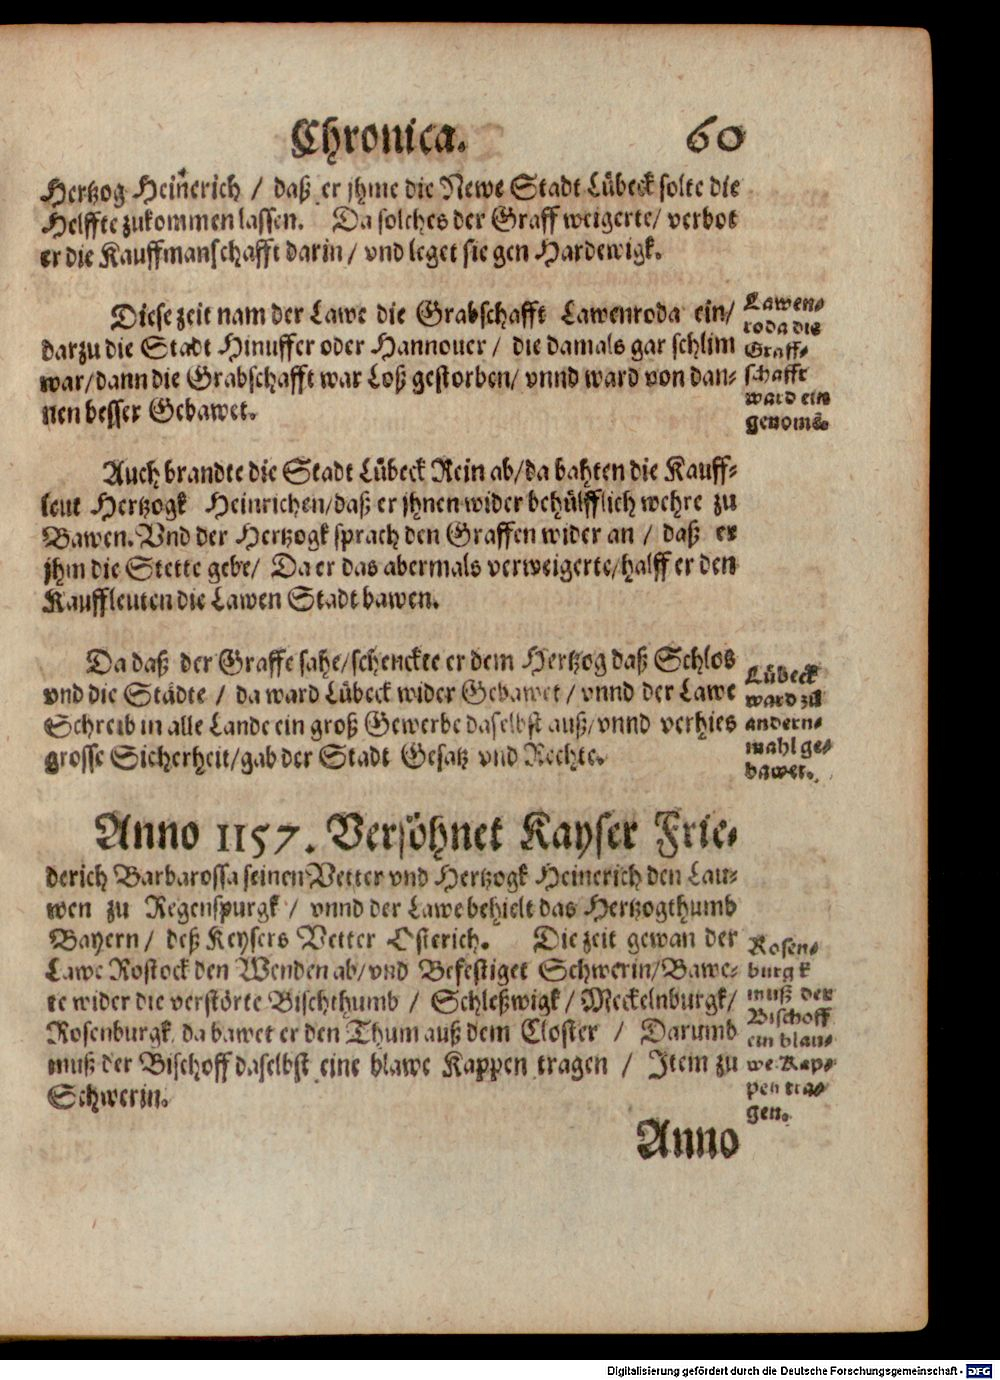 Chronica. 60
Hertzog Heinerich / daß er jhme die Newe Stadt Lübeck solte die
Helffte zukommen lassen. Da solches der Graff weigerte/ verbot
er die Kauffmanschafft darin / vnd leget sie gen Hardewigk.
Diese zeit nam der Lawe die Grabschafft Lawenroda ein/
darzu die Stadt Hinuffer oder Hannouer / die damals gar schlim
war/dann die Grabschafft war Loß gestorben/ vnnd ward von dan-
nen besser Gebawet.
Lawen-
roda die
Graff-
schafft
ward ein
genomē.
Auch brandte die Stadt Lübeck Rein ab/da bahten die Kauff-
leut Hertzogk Heinrichen/daß er jhnen wider behülfflich wehre zu
Bawen. Vnd der Hertzogk sprach den Graffen wider an / daß er
jhm die Stette gebe/ Da er das abermals verweigerte/halff er den
Kauffleuten die Lawen Stadt bawen.
Da daß der Graffe sahe/schenckte er dem Hertzog daß Schlos
vnd die Städte / da ward Lübeck wider Gebawet / vnnd der Lawe
Schreib in alle Lande ein groß Gewerbe daselbst auß/vnnd verhies
grosse Sicherheit/gab der Stadt Gesatz vnd Rechte.
Lübeck
ward zū
andern-
mahl ge-
bawet.
Anno 1157. Versöhnet Kayser Frie-
derich Barbarossa seinen Vetter vnd Hertzogk Heinerich den Lau-
wen zu Regenspurgk / vnnd der Lawe behielt das Hertzogthumb
Bayern / deß Keysers Vetter Osterich. Die zeit gewan der
Lawe Rostock den Wenden ab/vnd Befestiget Schwerin/Bawe-
te wider die verstörte Bischthumb / Schleßwigk / Meckelnburgk/
Rosenburgk, da bawet er den Thum auß dem Closter / Darumb
muß der Bischoff daselbst eine blawe Kappen tragen / Item zu
Schwerin.
Rosen-
burgk
muß der
Bischoff
ein blau-
we Kap-
pen tra-
gen.
Anno
Digitalisierung gefördert durch die Deutsche Forschungsgemeinschaft - DFG